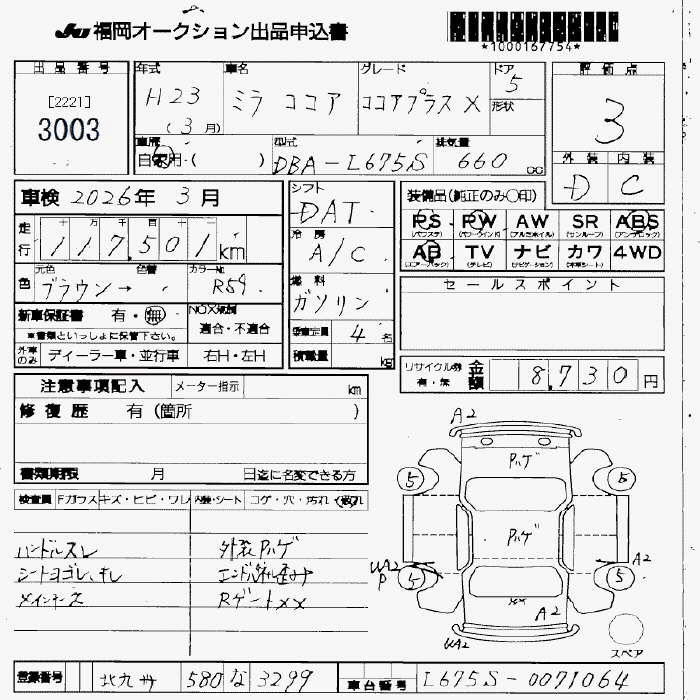 JU 福岡オークション出品申込書
*1000167754*
出品番号
[2221]
3003
年式 車名 グレード ドア 5
H23 ミラ ココア ココアプラス X 形状
(3月)
車歴 型式 排気量
自家用・( ) DBA-L675S 660 cc
評価点
3
外装 内装
D C
車検 2026年 3月
走行 十万千百十一
117,501km
元色 色替 カラーNo.
色 ブラウン→ R59
新車保証書 有・無 NOX規制
※書類といっしょに保管下さい。 適合・不適合
外車のみ ディーラー車・並行車 右H・左H
シフト
DAT
冷房
A/C
燃料
ガソリン
乗車定員 4名
積載量 kg
装備品(純正のみ○印)
PS PW AW SR ABS
(パワステ) (パワーウインド) (アルミホイル) (サンルーフ) (アンチロック)
AB TV ナビ カワ 4WD
(エアーバック) (テレビ) (ナビゲーション) (本革シート)
セールスポイント
リサイクル券 有・無 金額 8,730円
注意事項記入 メーター指示 km
修復歴 有(箇所 )
書類期限 月 日迄に名変できる方
検査員 Fガラス キズ・ヒビ・ワレ 内装・シート コゲ・穴・汚れ・破れ
ハンドルスレ 外装Pハゲ
シートヨゴレ、キレ
メインキーズ RゲートXX
A2
Pハゲ
5 5
Pハゲ
UA2 A2
P 5 5
XX A2
UA2 スペア
登録番号 北九州 580 な 3299 車台番号 L675S-0071064